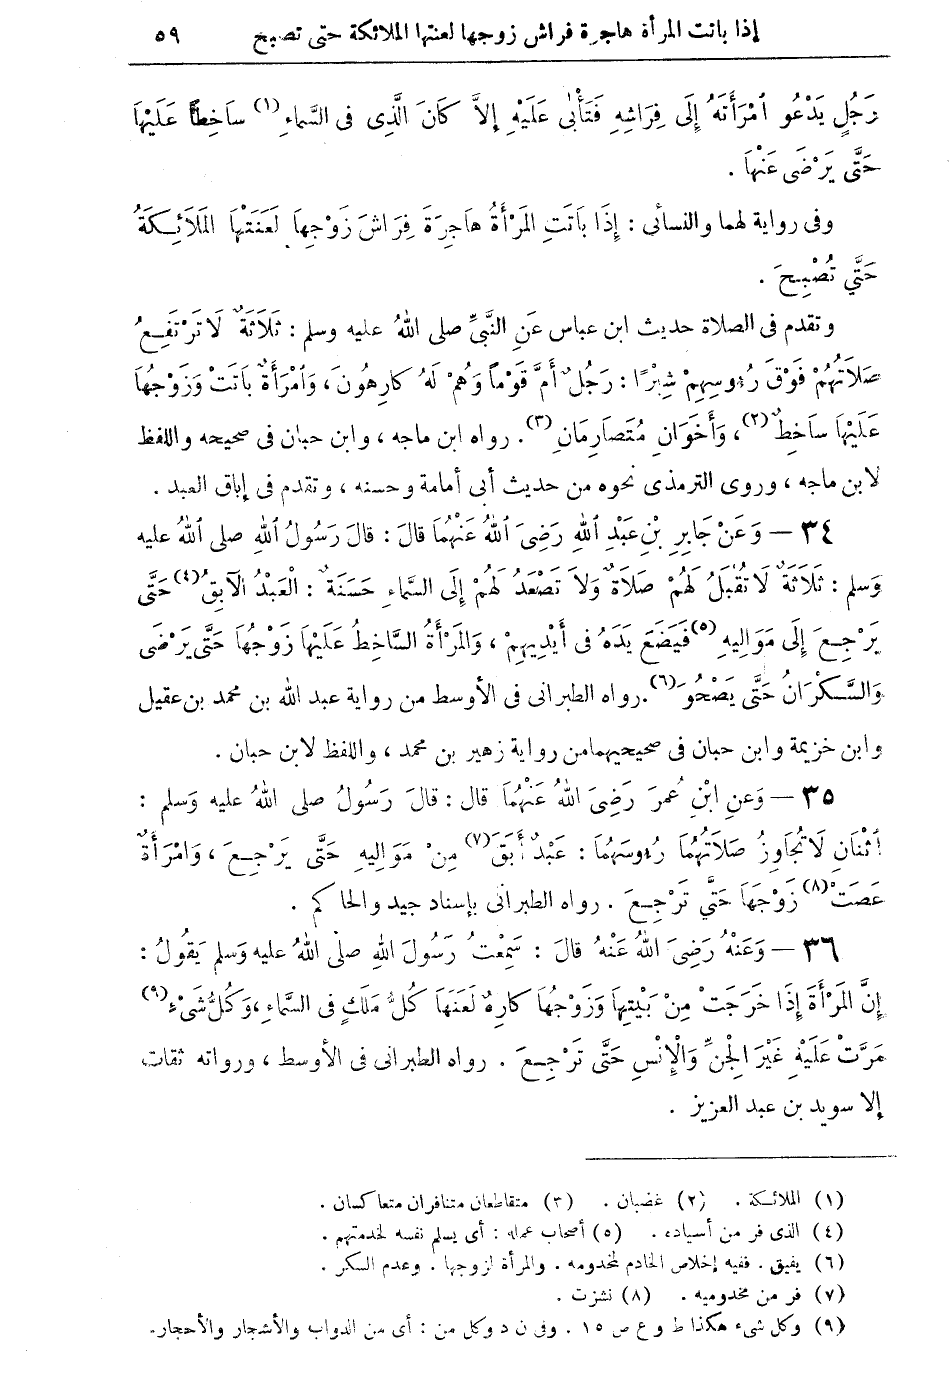 إذا باتت المرأة هاجرة فراش زوجها لعنتها الملائكة حتى تصبح ٥٩
رَجُلٍ يَدْعُو ٱمْرَأَتَهُ إِلَى فِرَاشِهِ فَتَأْبَى عَلَيْهِ إِلاَّ كَانَ الَّذِى فى السَّماءِ (١) سَاخِطاً عَلَيْهَا
حَتَّى يَرْضَى عَنْهَا .
وفى رواية لهما والنسائى : إِذَا بَاتَتِ المَرْأَةُ هَاجِرَةً فِرَاشَ زَوْجِهَا لَعَنَتْهَا المَلَائِكَةُ
حَتَّى تُصْبِحَ .
وتقدم فى الصلاة حديث ابن عباس عَنِ النَّبِىِّ صلى اللهُ عليه وسلم : ثَلَاثَةٌ لَا تَرْتَفِعُ
صَلَاتُهُمْ فَوْقَ رُءُوسِهِمْ شِبْرًا : رَجُلٌ أَمَّ قَوْماً وَهُمْ لَهُ كارِهُونَ ، وَٱمْرَأَةٌ بَاتَتْ وَزَوْجُهَا
عَلَيْهَا سَاخِطٌ (٢) ، وَأَخَوَانِ مُتَصَارِمَانِ (٣) . رواه ابن ماجه ، وابن حبان فى صحيحه واللفظ
لابن ماجه ، وروى الترمذى نحوه من حديث أبى أمامة وحسنه ، وتقدم فى إباق العبد .
٣٤ — وَعَنْ جَابِرِ بْنِ عَبْدِ ٱللهِ رَضِىَ ٱللهُ عَنْهُمَا قَالَ : قَالَ رَسُولُ ٱللهِ صلى ٱللهُ عليه
وَسلم : ثَلَاثَةٌ لَا تُقْبَلُ لَهُمْ صَلَاةٌ وَلاَ تَصْعَدُ لَهُمْ إِلَى السَّمَاءِ حَسَنَةٌ : الْعَبْدُ الآبِقُ (٤) حَتَّى
يَرْجِعَ إِلَى مَوَالِيهِ (٥) فَيَضَعَ يَدَهُ فى أَيْدِيهِمْ ، وَالمَرْأَةُ السَّاخِطُ عَلَيْهَا زَوْجُهَا حَتَّى يَرْضَى
وَالسَّكْرَانُ حَتَّى يَصْحُوَ (٦) . رواه الطبرانى فى الأوسط من رواية عبد الله بن محمد بن عقيل
وابن خزيمة وابن حبان فى صحيحيهما من رواية زهير بن محمد ، واللفظ لابن حبان .
٣٥ — وَعَنِ ابْنِ عُمَرَ رَضِىَ اللهُ عَنْهُمَا قال : قَالَ رَسُولُ صلى اللهُ عليه وَسلم :
ٱثْنَانِ لَا تُجَاوِزُ صَلَاتُهُمَا رُءوسَهُمَا : عَبْدٌ أَبَقَ (٧) مِنْ مَوَالِيهِ حَتَّى يَرْجِعَ ، وَامْرَأَةٌ
عَصَتْ (٨) زَوْجَهَا حَتَّى تَرْجِعَ . رواه الطبرانى بإسناد جيد والحاكم .
٣٦ — وَعَنْهُ رَضِىَ اللهُ عَنْهُ قَالَ : سَمِعْتُ رَسُولَ اللهِ صلى اللهُ عليه وَسلم يَقُولُ :
إِنَّ المَرْأَةَ إِذَا خَرَجَتْ مِنْ بَيْتِهَا وَزَوْجُهَا كَارِهٌ لَعَنَهَا كُلُّ مَلَكٍ فى السَّمَاءِ ، وَكُلُّ شَىْءٍ (٩)
مَرَّتْ عَلَيْهِ غَيْرَ الْجِنِّ وَالْإِنْسِ حَتَّى تَرْجِعَ . رواه الطبرانى فى الأوسط ، ورواته ثقات
إلا سويد بن عبد العزيز .
(١) الملائكة . (٢) غضبان . (٣) متقاطعان متنافران متعاكسان .
(٤) الذى فر من أسياده . (٥) أصحاب عمله : أى يسلم نفسه لخدمتهم .
(٦) يفيق . ففيه إخلاص الخادم لمخدومه . والمرأة لزوجها . وعدم السكر .
(٧) فر من مخدوميه . (٨) نشزت .
(٩) وكل شىء هكذا ط و ع ص ١٥ . وفى ن د وكل من : أى من الدواب والأشجار والأحجار .